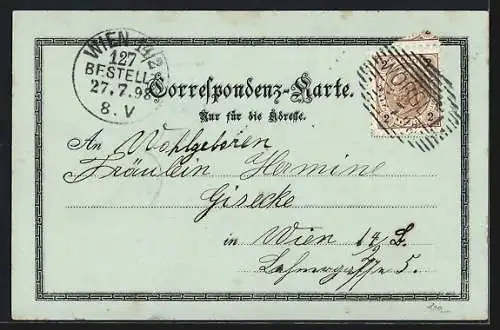 WIEN 14/2
127
BESTELLT
27.7.98
8.V
Correspondenz-Karte.
Nur für die Adresse.
2 2
An Wohlgeboren
Fräulein Hermine
Gisecke
in Wien
5.